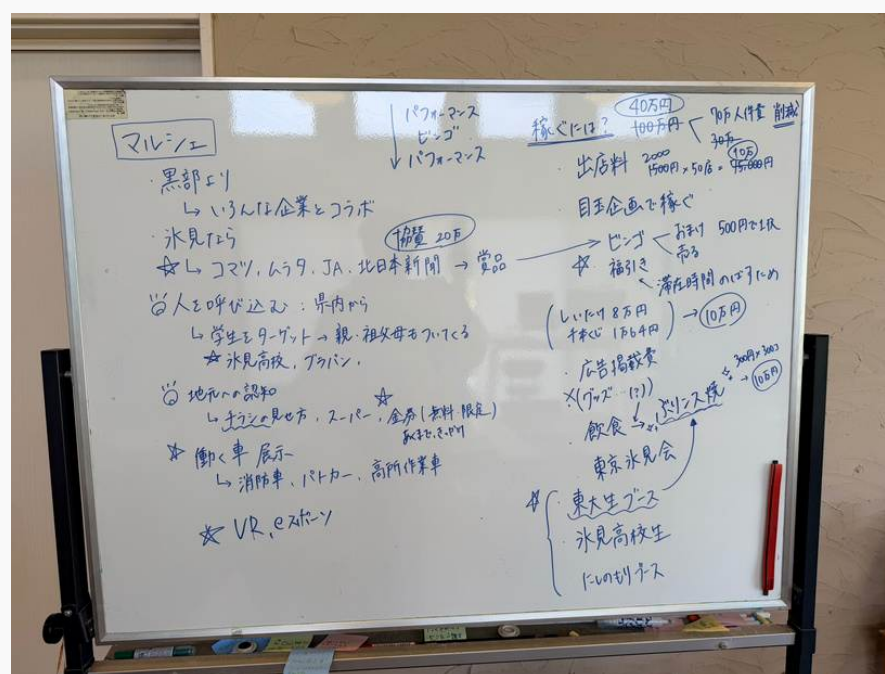 マルシェ
・黒部より
↳ いろんな企業とコラボ
・氷見なら
☆↳ コマツ、ムラタ、JA、北日本新聞 → 賞品
協賛 20万
◎人を呼び込む：県内から
↳ 学生をターゲット → 親・祖父母もついてくる
☆氷見高校、ブラバン、
◎ 地元への認知
↳ チラシの見せ方、スーパー、金券（無料・限定）
あくまで、きっかけ
☆ 働く車 展示
↳ 消防車、パトカー、高所作業車
☆ VR、eスポーツ
パフォーマンス
ビンゴ
パフォーマンス
稼ぐには？ 40万円
100万円
70万人件費 削減?
30万
・出店料 2000
1500円×50店 = 75,000円
10万
・目玉企画で稼ぐ
ビンゴ おまけ 500円で1枚
売る
☆ 福引き
滞在時間のばすため
(しいたけ 8万円
千本くじ 1万64円) → 10万円
・広告掲載費
×(グッズ…(?))
・飲食 → ぶりンス焼
300円×300コ
→ 10万円
東京氷見会
☆ ・東大生ブース
・氷見高校生
・にしのもりブース